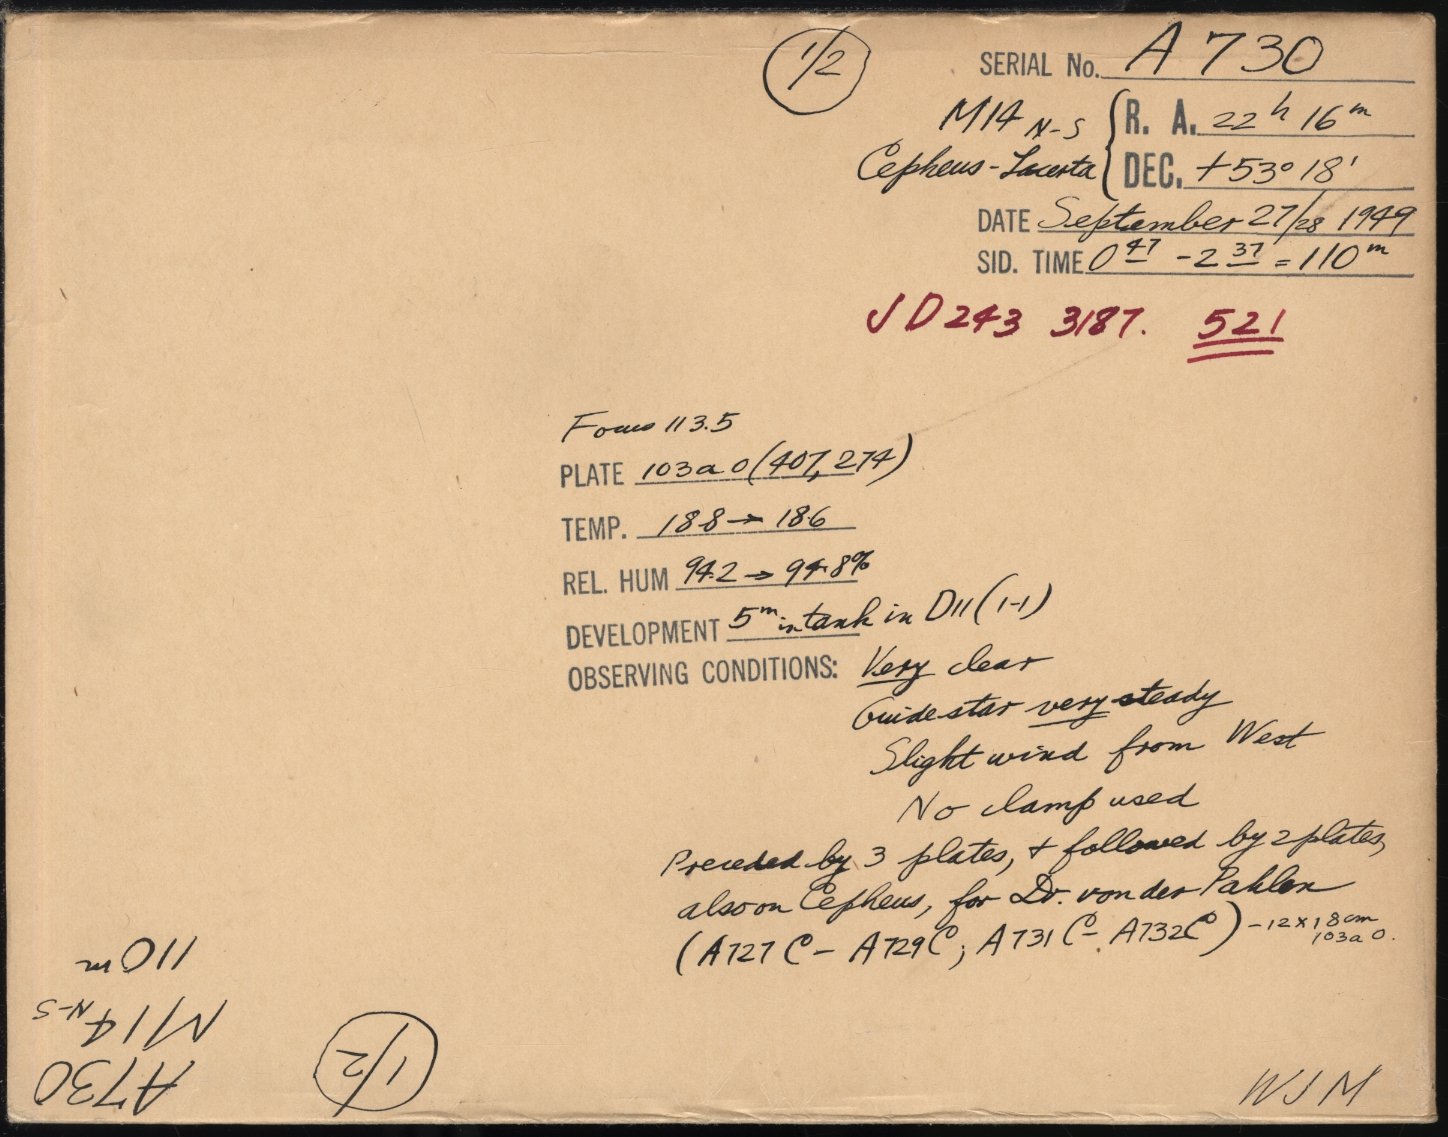 1/2
SERIAL No. A730
M14 N-S
R. A. 22h 16m
Cepheus-Lacerta
DEC. +53° 18'
DATE September 27/28 1949
SID. TIME 0 47 - 2 37 = 110m
JD 243 3187. 521
Focus 113.5
PLATE 103a O (407, 274)
TEMP. 18.8 → 18.6
REL. HUM 94.2 → 94.8%
DEVELOPMENT 5m in tank in D11 (1-1)
OBSERVING CONDITIONS: Very clear
Guide star very steady
Slight wind from West
No clamp used
Preceded by 3 plates, + followed by 2 plates,
also on Cepheus, for Dr. von der Pahlen
(A727C - A729C; A731C - A732C) - 12 x 18 cm
103a O.
110m
M14 N-S
A730
1/2
WJM